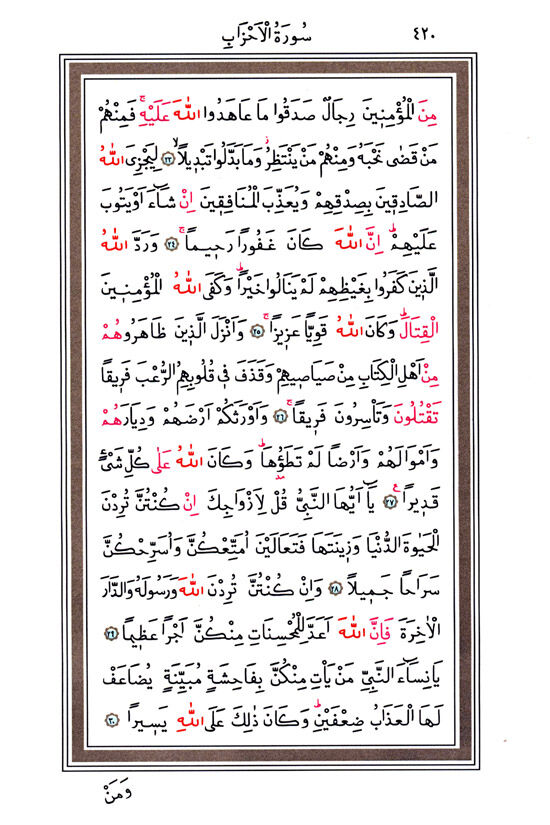 سُورَةُ الْاَحْزَابِ ٤٢٠
مِنَ الْمُؤْمِنٖينَ رِجَالٌ صَدَقُوا مَا عَاهَدُوا اللّٰهَ عَلَيْهِۚ فَمِنْهُمْ
مَنْ قَضٰى نَحْبَهُ وَمِنْهُمْ مَنْ يَنْتَظِرُۘ وَمَا بَدَّلُوا تَبْدٖيلًاۙ ﴿٢٣﴾ لِيَجْزِىَ اللّٰهُ
الصَّادِقٖينَ بِصِدْقِهِمْ وَيُعَذِّبَ الْمُنَافِقٖينَ اِنْ شَٓاءَ اَوْ يَتُوبَ
عَلَيْهِمْۜ اِنَّ اللّٰهَ كَانَ غَفُورًا رَحٖيمًاۚ ﴿٢٤﴾ وَرَدَّ اللّٰهُ
الَّذٖينَ كَفَرُوا بِغَيْظِهِمْ لَمْ يَنَالُوا خَيْرًاۜ وَكَفَى اللّٰهُ الْمُؤْمِنٖينَ
الْقِتَالَۜ وَكَانَ اللّٰهُ قَوِيًّا عَزٖيزًاۚ ﴿٢٥﴾ وَاَنْزَلَ الَّذٖينَ ظَاهَرُوهُمْ
مِنْ اَهْلِ الْكِتَابِ مِنْ صَيَاصٖيهِمْ وَقَذَفَ فٖى قُلُوبِهِمُ الرُّعْبَ فَرٖيقًا
تَقْتُلُونَ وَتَأْسِرُونَ فَرٖيقًاۚ ﴿٢٦﴾ وَاَوْرَثَكُمْ اَرْضَهُمْ وَدِيَارَهُمْ
وَاَمْوَالَهُمْ وَاَرْضًا لَمْ تَطَؤُ۫هَاۜ وَكَانَ اللّٰهُ عَلٰى كُلِّ شَىْءٍ
قَدٖيرًاࣖ ﴿٢٧﴾ يَٓا اَيُّهَا النَّبِىُّ قُلْ لِاَزْوَاجِكَ اِنْ كُنْتُنَّ تُرِدْنَ
الْحَيٰوةَ الدُّنْيَا وَزٖينَتَهَا فَتَعَالَيْنَ اُمَتِّعْكُنَّ وَاُسَرِّحْكُنَّ
سَرَاحًا جَمٖيلًا ﴿٢٨﴾ وَاِنْ كُنْتُنَّ تُرِدْنَ اللّٰهَ وَرَسُولَهُ وَالدَّارَ
الْاٰخِرَةَ فَاِنَّ اللّٰهَ اَعَدَّ لِلْمُحْسِنَاتِ مِنْكُنَّ اَجْرًا عَظٖيمًا ﴿٢٩﴾
يَا نِسَٓاءَ النَّبِىِّ مَنْ يَأْتِ مِنْكُنَّ بِفَاحِشَةٍ مُبَيِّنَةٍ يُضَاعَفْ
لَهَا الْعَذَابُ ضِعْفَيْنِۜ وَكَانَ ذٰلِكَ عَلَى اللّٰهِ يَسٖيرًا ﴿٣٠﴾
وَمَنْ